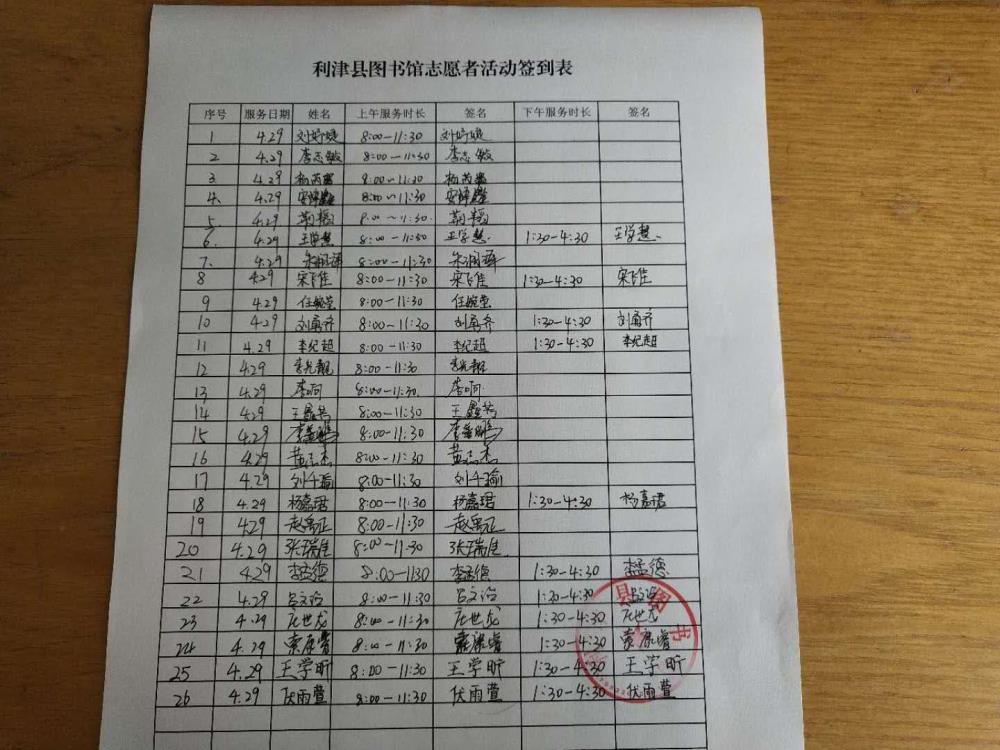 利津县图书馆志愿者活动签到表
序号 服务日期 姓名 上午服务时长 签名 下午服务时长 签名
1 4.29 8:00-11:30
2 4.29 李志敏 8:00-11:30 李志敏
3 4.29 8:00-11:30
4. 4.29 8:00-11:30
5. 4.29 8:00-11:30.
6. 4.29 王学慧 8:00-11:30 王学慧. 1:30-4:30 王学慧.
7. 4.29 朱润泽 8:00-11:30 朱润泽
8 4.29 宋飞佳 8:00-11:30 宋飞佳 1:30-4:30 宋飞佳
9 4.29 任婉莹 8:00-11:30 任婉莹
10 4.29 刘甬齐 8:00-11:30 刘甬齐 1:30-4:30 刘甬齐
11 4.29 李纪超 8:00-11:30 李纪超 1:30-4:30 李纪超
12 4.29 李光靓 8:00-11:30 李光靓
13 4.29 李响 8:00-11:30. 李响
14 4.29 8:00-11:30
15 4.29 8:00-11:30
16 4.29 黄志杰 8:00-11:30 黄志杰
17 4.29 刘千瑜 8:00-11:30 刘千瑜
18 4.29 杨嘉珺 8:00-11:30 杨嘉珺 1:30-4:30 杨嘉珺
19 4.29 赵禹正 8:00-11:30 赵禹正
20 4.29 张瑞佳 8:00-11:30 张瑞佳
21 4.29 李孟德 8:00-1130 李孟德 1:30-4:30 李孟德
22 4.29 吕文谙 8:00-11:30 吕文谙 1:30-4:30
23 4.29 庄世龙 8:00-11:30 庄世龙 1:30-4:30 庄世龙
24 4.29 索康睿 8:00-11:30 索康睿 1:30-4:30 索康睿
25 4.29 王学昕 8:00-11:30 王学昕 1:30-4:30 王学昕
26 4.29 伏雨萱 8:00-11:30 伏雨萱 1:30-4:30 伏雨萱
县图书